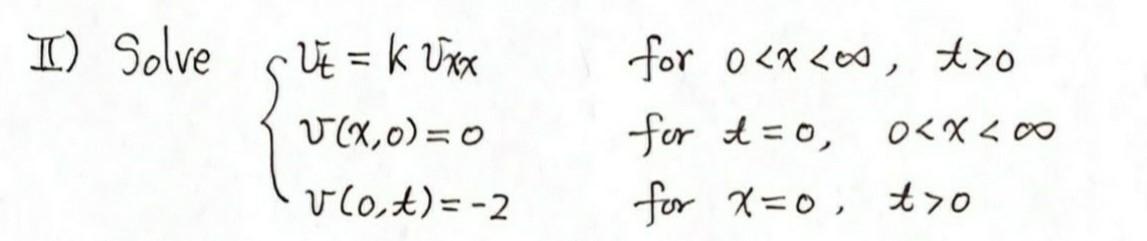 II) Solve { v_t = k v_xx for 0<x<∞, t>0
v(x,0)=0 for t=0, 0<x<∞
v(0,t)=-2 for x=0, t>0